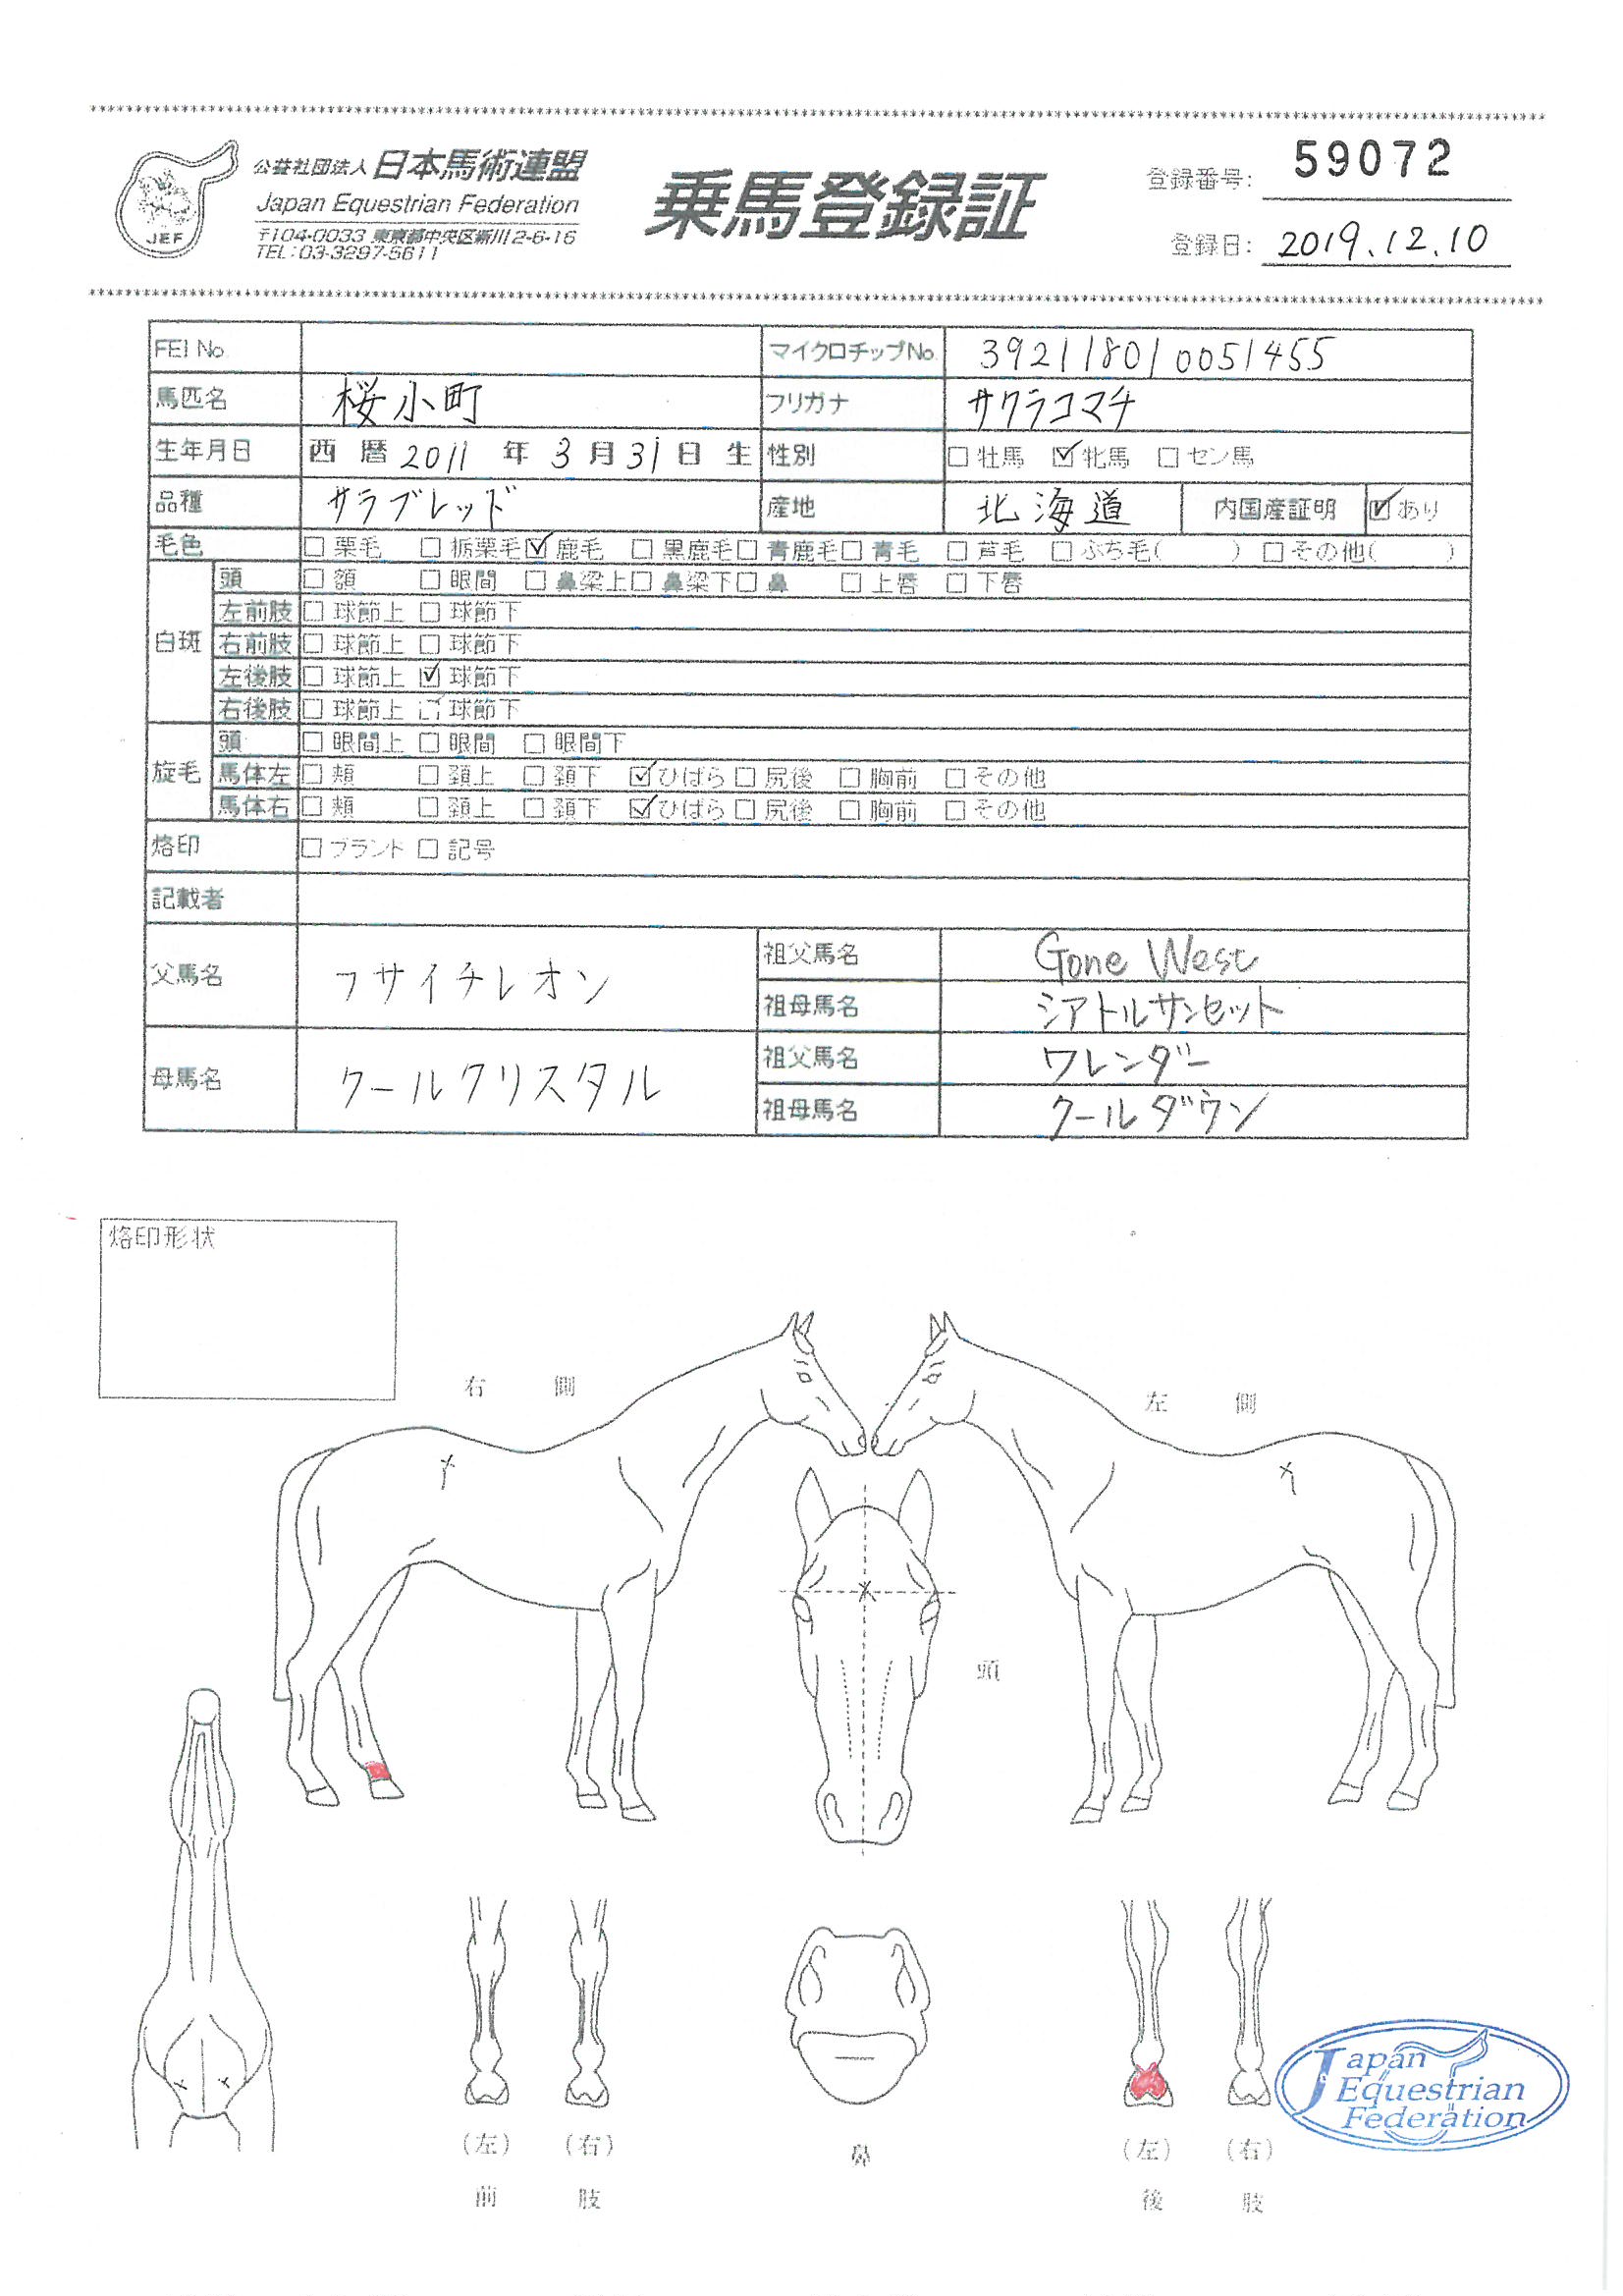 公益社団法人 日本馬術連盟
Japan Equestrian Federation
〒104-0033 東京都中央区新川2-6-16
TEL:03-3297-5611
JEF
乗馬登録証
登録番号: 59072
登録日: 2019.12.10
FEI No. マイクロチップNo. 392118010051455
馬匹名 桜小町 フリガナ サクラコマチ
生年月日 西暦 2011 年 3 月 31 日 生 性別 □ 牡馬 ☑ 牝馬 □ セン馬
品種 サラブレッド 産地 北海道 内国産証明 ☑ あり
毛色 □ 栗毛 □ 栃栗毛 ☑ 鹿毛 □ 黒鹿毛 □ 青鹿毛 □ 青毛 □ 芦毛 □ ぶち毛( ) □ その他( )
白斑 頭 □ 額 □ 眼間 □ 鼻梁上 □ 鼻梁下 □ 鼻 □ 上唇 □ 下唇
左前肢 □ 球節上 □ 球節下
右前肢 □ 球節上 □ 球節下
左後肢 □ 球節上 ☑ 球節下
右後肢 □ 球節上 □ 球節下
旋毛 頭 □ 眼間上 □ 眼間 □ 眼間下
馬体左 □ 頬 □ 頚上 □ 頚下 ☑ ひばら □ 尻後 □ 胸前 □ その他
馬体右 □ 頬 □ 頚上 □ 頚下 ☑ ひばら □ 尻後 □ 胸前 □ その他
烙印 □ ブランド □ 記号
記載者
父馬名 フサイチレオン 祖父馬名 Gone West
祖母馬名 シアトルサンセット
母馬名 クールクリスタル 祖父馬名 ワレンダー
祖母馬名 クールダウン
烙印形状
右 側
左 側
頭
(左) (右)
前 肢
鼻
(左) (右)
後 肢
Japan
Equestrian
Federation